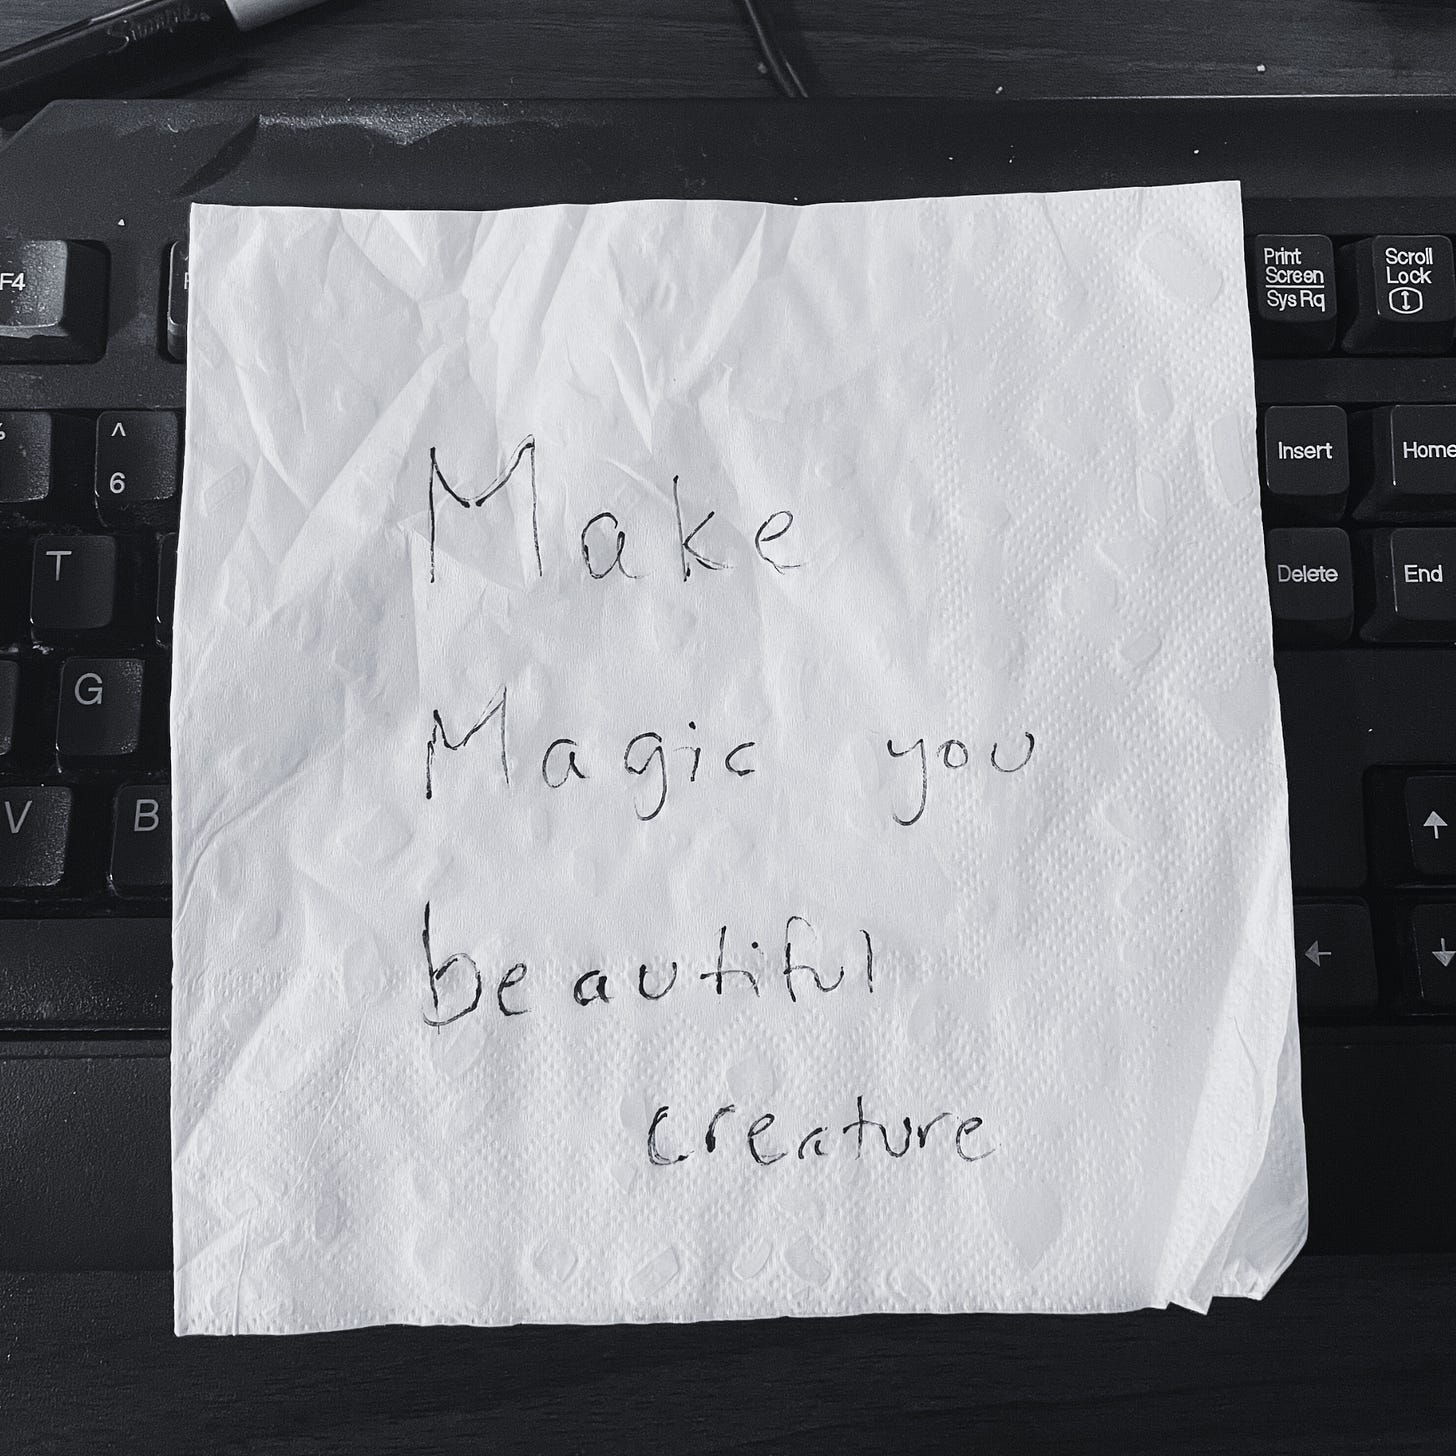 F4
Print
Screen
Sys Rq
Scroll
Lock
^
6
Insert
Home
T
Delete
End
G
V B
Make
Magic you
beautiful
creature